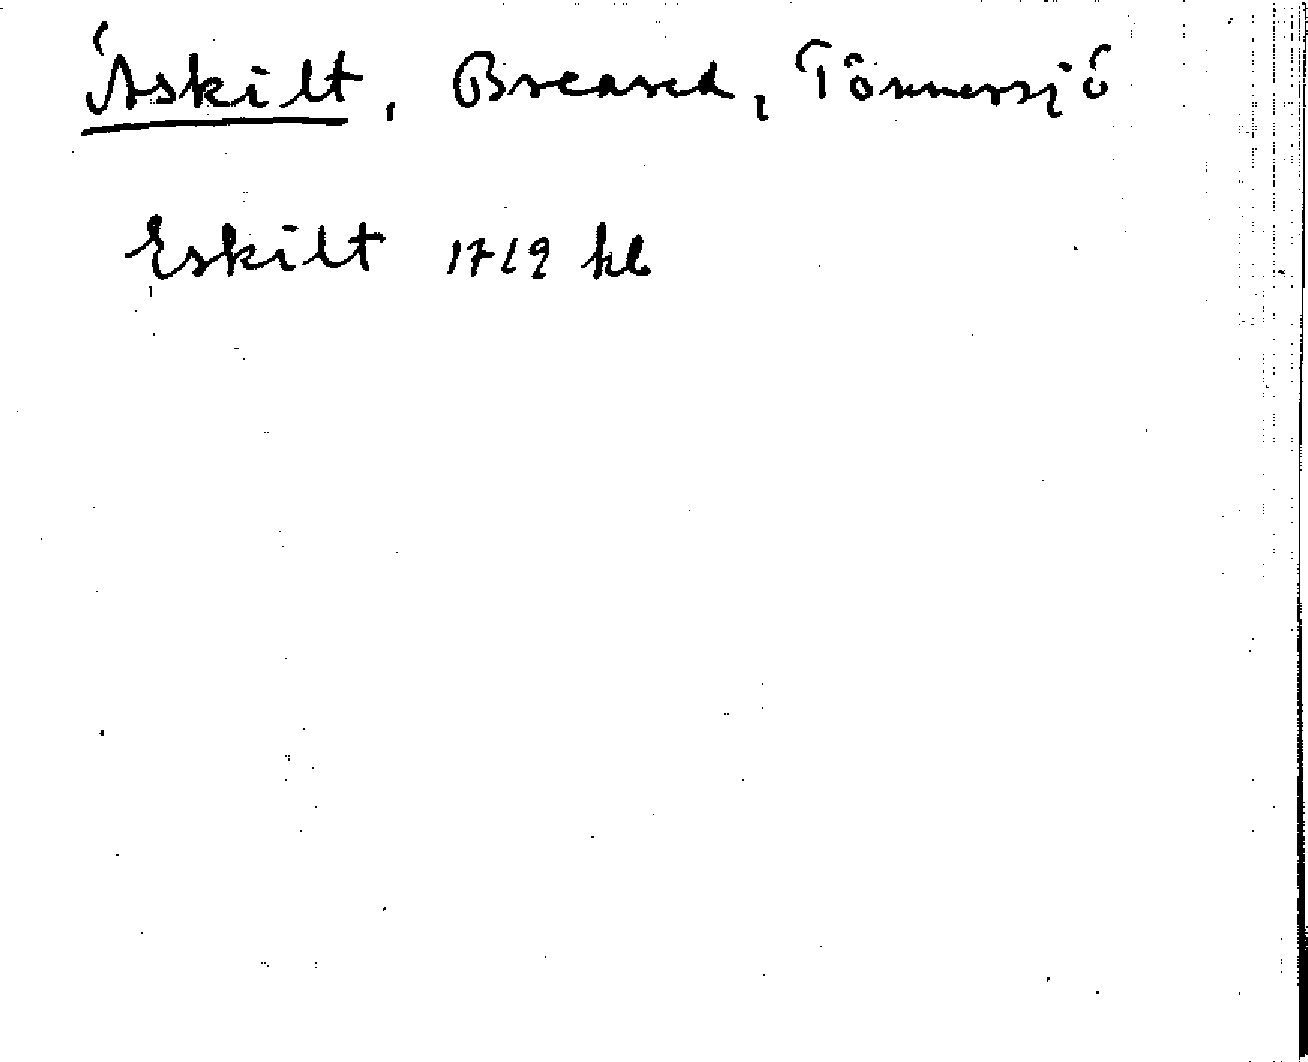 Äskilt, Breared, Tönnersjö
Eskilt 1719 kb